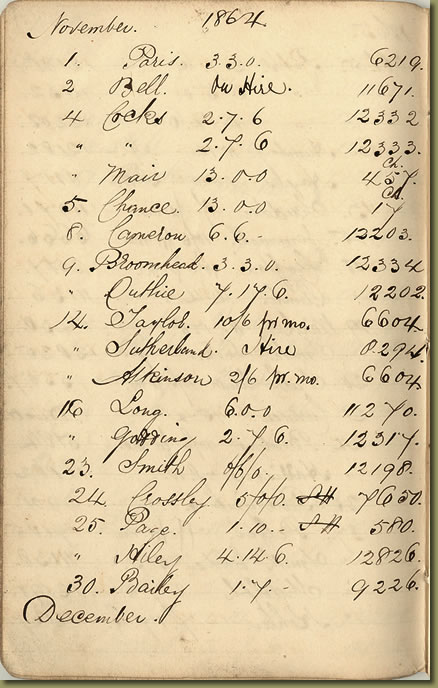 November. 1864
1. Paris 3.3.0. 6219.
2 Bell. On Hire. 11671.
4 Cocks 2.7.6 12332
" " 2.7.6 12333.
" Mair 13.0.0 Ch. 457.
5. Chance. 13.0.0 Cd. 17
8. Cameron 6.6.- 12203.
9. Broomhead. 3.3.0. 12334
" Duthie 7.17.6. 12202.
14. Taylor. 10/6 pr mo. 6604
" Sutherland. Hire 8294
" Atkinson 2/6 pr. mo. 6604
16 Long. 6.0.0 11270.
" 2.7.6. 12317.
23. Smith 12198.
24. Crossley 5/0/0. SH 7650.
25. Page. 1.10.- SH 580.
" Hiley 4.14.6. 12826.
30. Bailey 1.7.- 9226.
December.